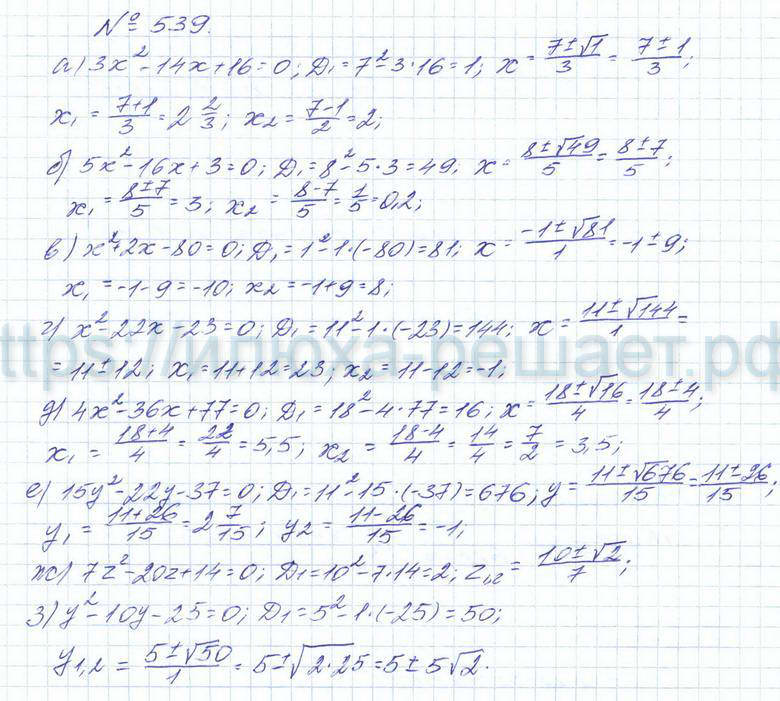 № 539.
а) 3x² - 14x + 16 = 0; Д₁ = 7² - 3·16 = 1; x = (7 ± √1)/3 = (7 ± 1)/3;
x₁ = (7+1)/3 = 2 2/3; x₂ = (7-1)/2 = 2;
б) 5x² - 16x + 3 = 0; Д₁ = 8² - 5·3 = 49. x = (8 ± √49)/5 = (8 ± 7)/5;
x₁ = (8 ± 7)/5 = 3; x₂ = (8-7)/5 = 1/5 = 0,2;
в) x² + 2x - 80 = 0; Д₁ = 1² - 1·(-80) = 81; x = (-1 ± √81)/1 = -1 ± 9;
x₁ = -1 - 9 = -10; x₂ = -1 + 9 = 8;
г) x² - 22x - 23 = 0; Д₁ = 11² - 1·(-23) = 144; x = (11 ± √144)/1 =
https://илюха-решает.рф
= 11 ± 12; x₁ = 11 + 12 = 23; x₂ = 11 - 12 = -1;
д) 4x² - 36x + 77 = 0; Д₁ = 18² - 4·77 = 16; x = (18 ± √16)/4 = (18 ± 4)/4;
x₁ = (18+4)/4 = 22/4 = 5,5; x₂ = (18-4)/4 = 14/4 = 7/2 = 3,5;
е) 15y² - 22y - 37 = 0; Д₁ = 11² - 15·(-37) = 676; y = (11 ± √676)/15 = (11 ± 26)/15;
y₁ = (11+26)/15 = 2 7/15; y₂ = (11-26)/15 = -1;
ж) 7z² - 20z + 14 = 0; Д₁ = 10² - 7·14 = 2; z₁,₂ = (10 ± √2)/7;
з) y² - 10y - 25 = 0; Д₁ = 5² - 1·(-25) = 50;
y₁,₂ = (5 ± √50)/1 = 5 ± √(2·25) = 5 ± 5√2.